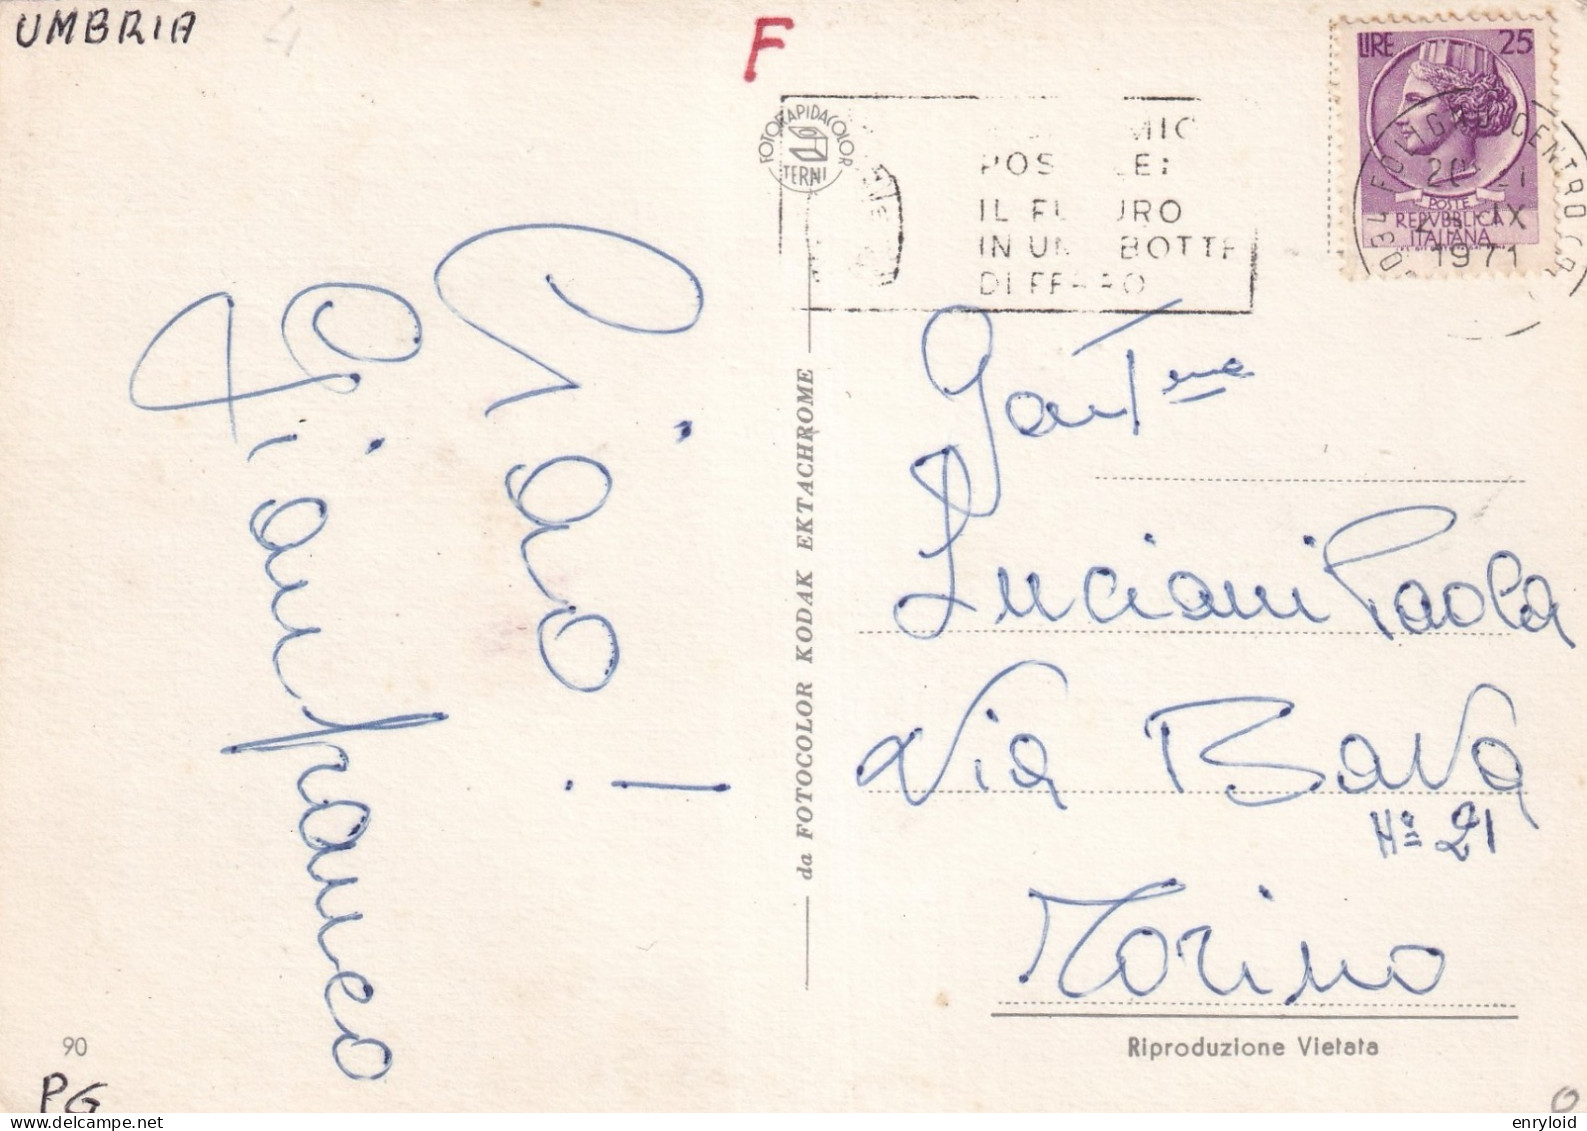 UMBRIA
F
FOTORAPIDACOLOR
TERNI
MIC
POS LE:
IL FU URO
IN UN BOTTE
DI FERRO
LIRE 25
POSTE
REPVBBLICA
ITALIANA
FOLIGNO CENTRO
IX
1971
Ciao!
Gianfranco
da FOTOCOLOR KODAK EKTACHROME
Gent.ma
Luciani Paola
Via Bava
N° 21
Torino
Riproduzione Vietata
90
PG
enryloid